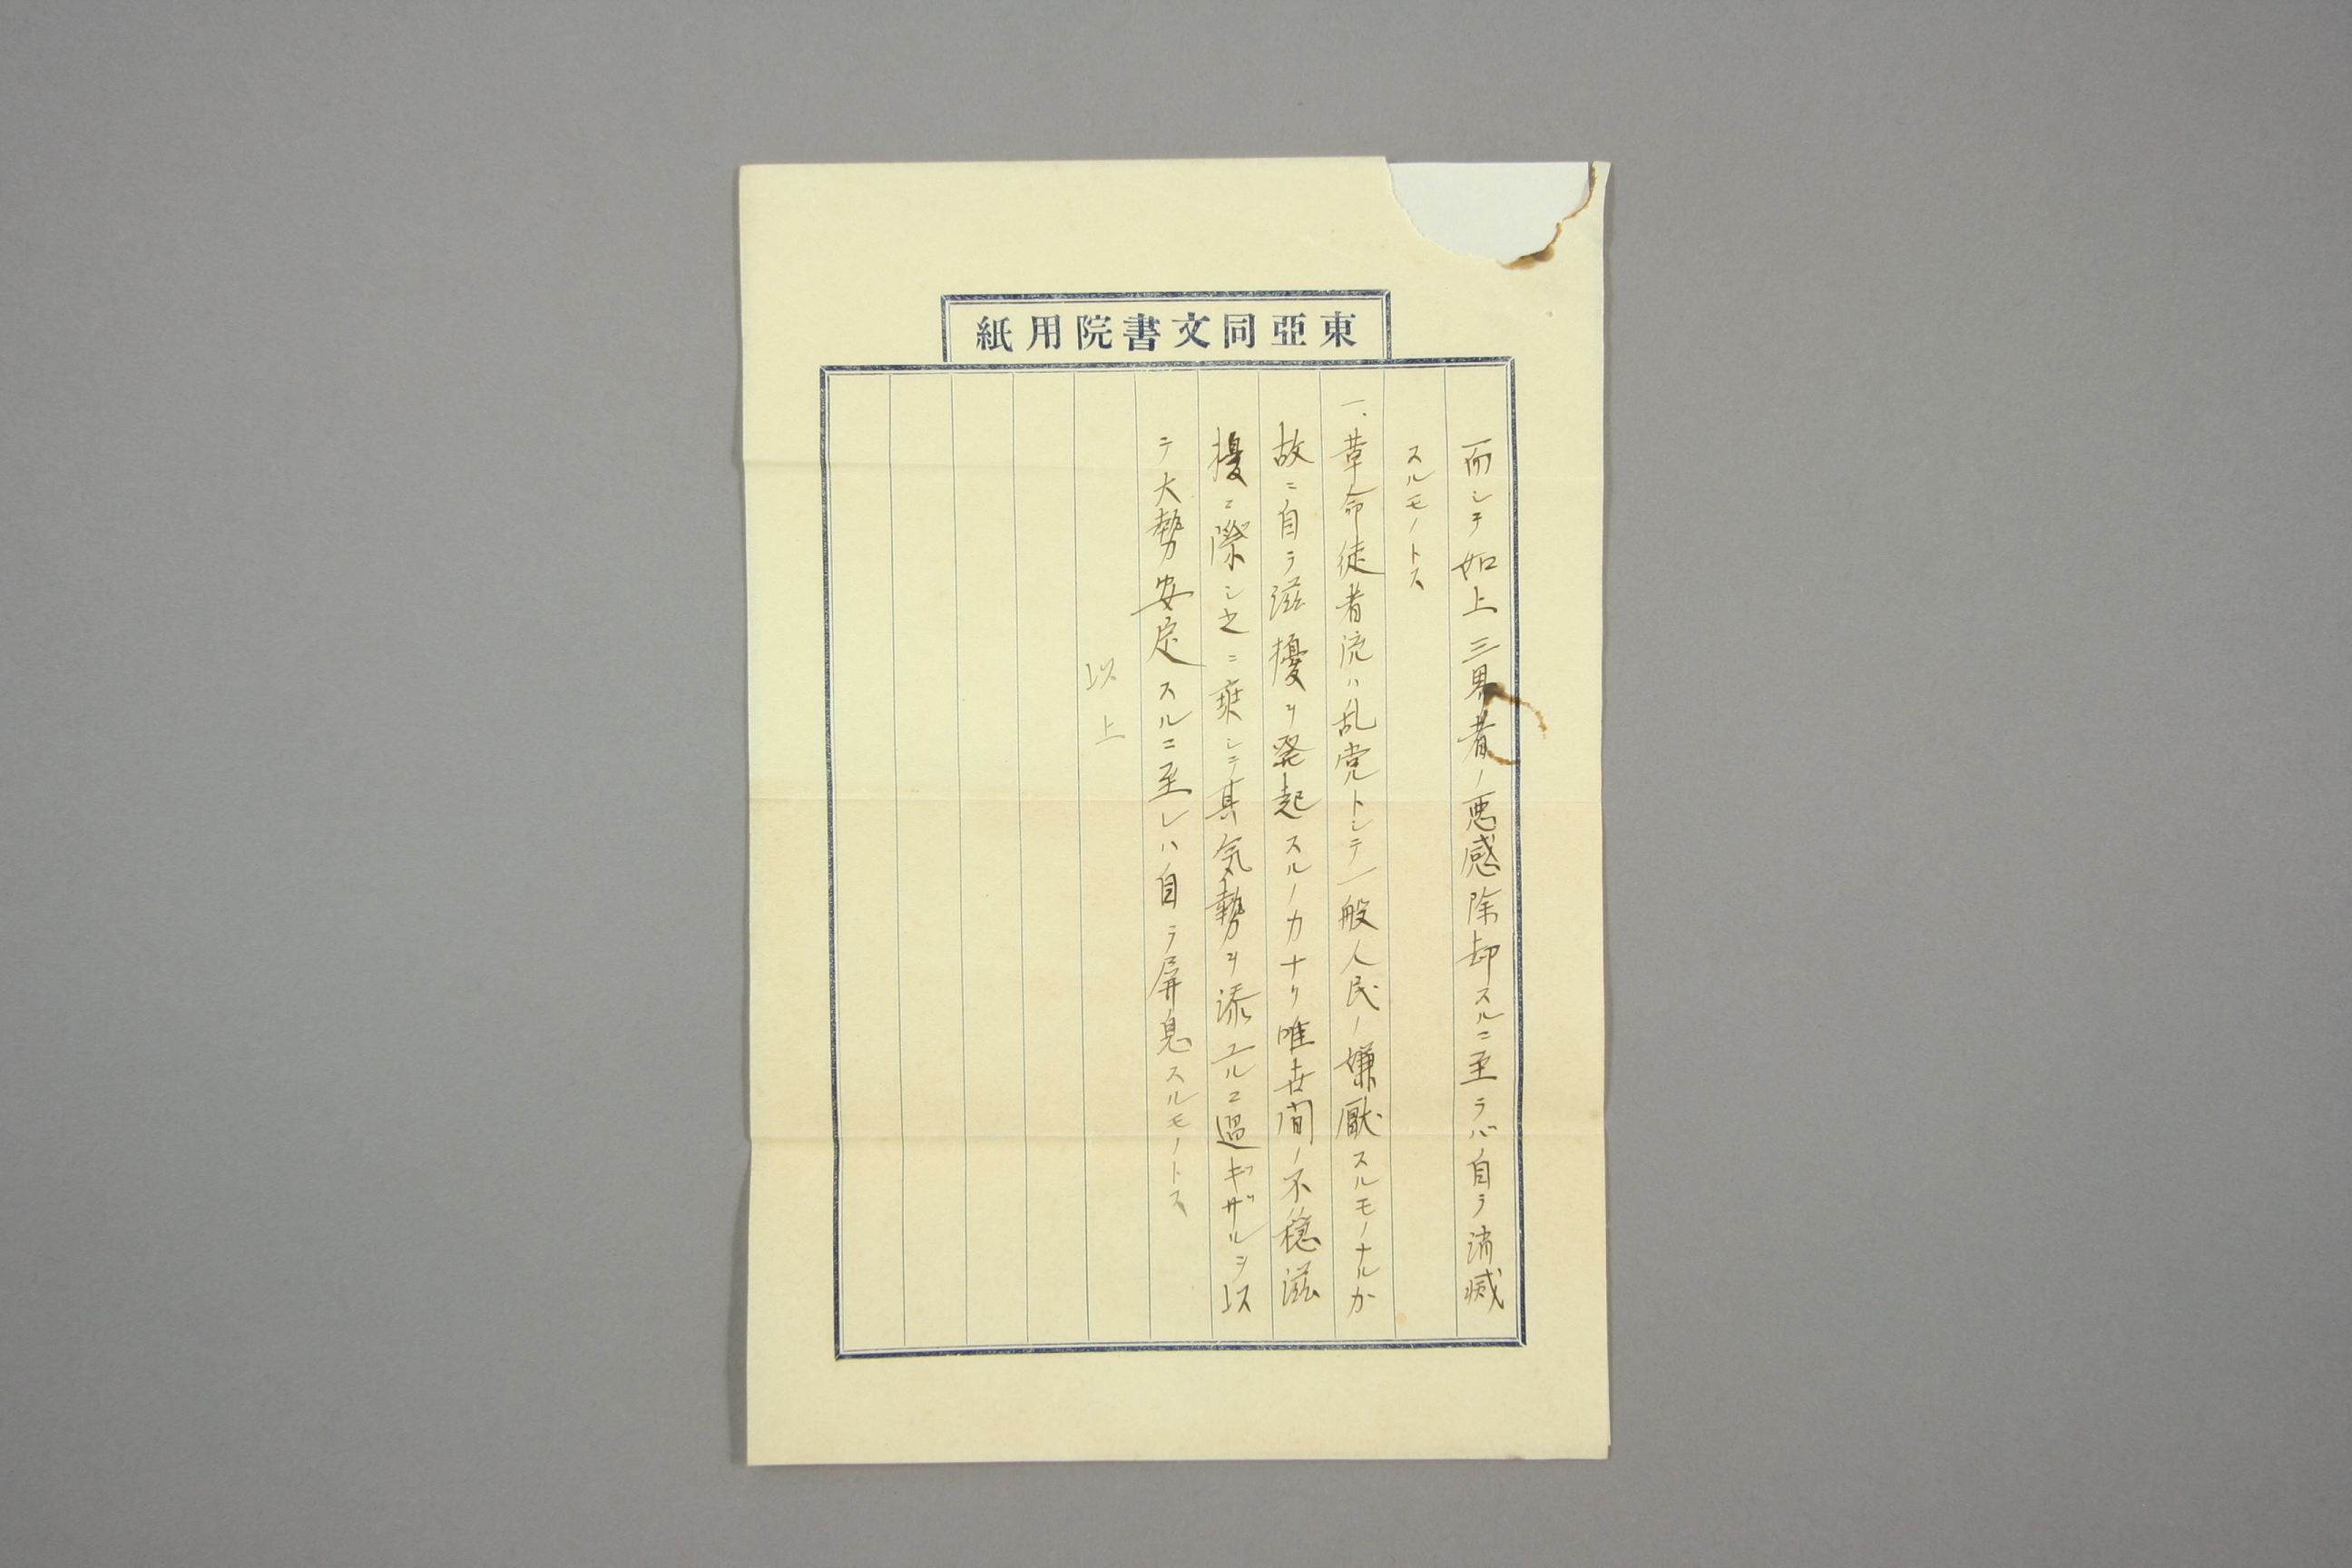 東亞同文書院用紙
而シテ如上三男者ノ悪感除却スルニ至ラバ自ラ消滅
スルモノトス
一、革命徒者流ハ乱党トシテ一般人民ノ嫌厭スルモノナルカ
故ニ自ラ滋擾ヲ発起スルノカナリ唯世間ノ不穏滋
擾ニ際シ之ニ乗シテ其気勢ヲ添ユルニ過ギザルヲ以
テ大勢安定スルニ至レハ自ラ屏息スルモノトス
以上